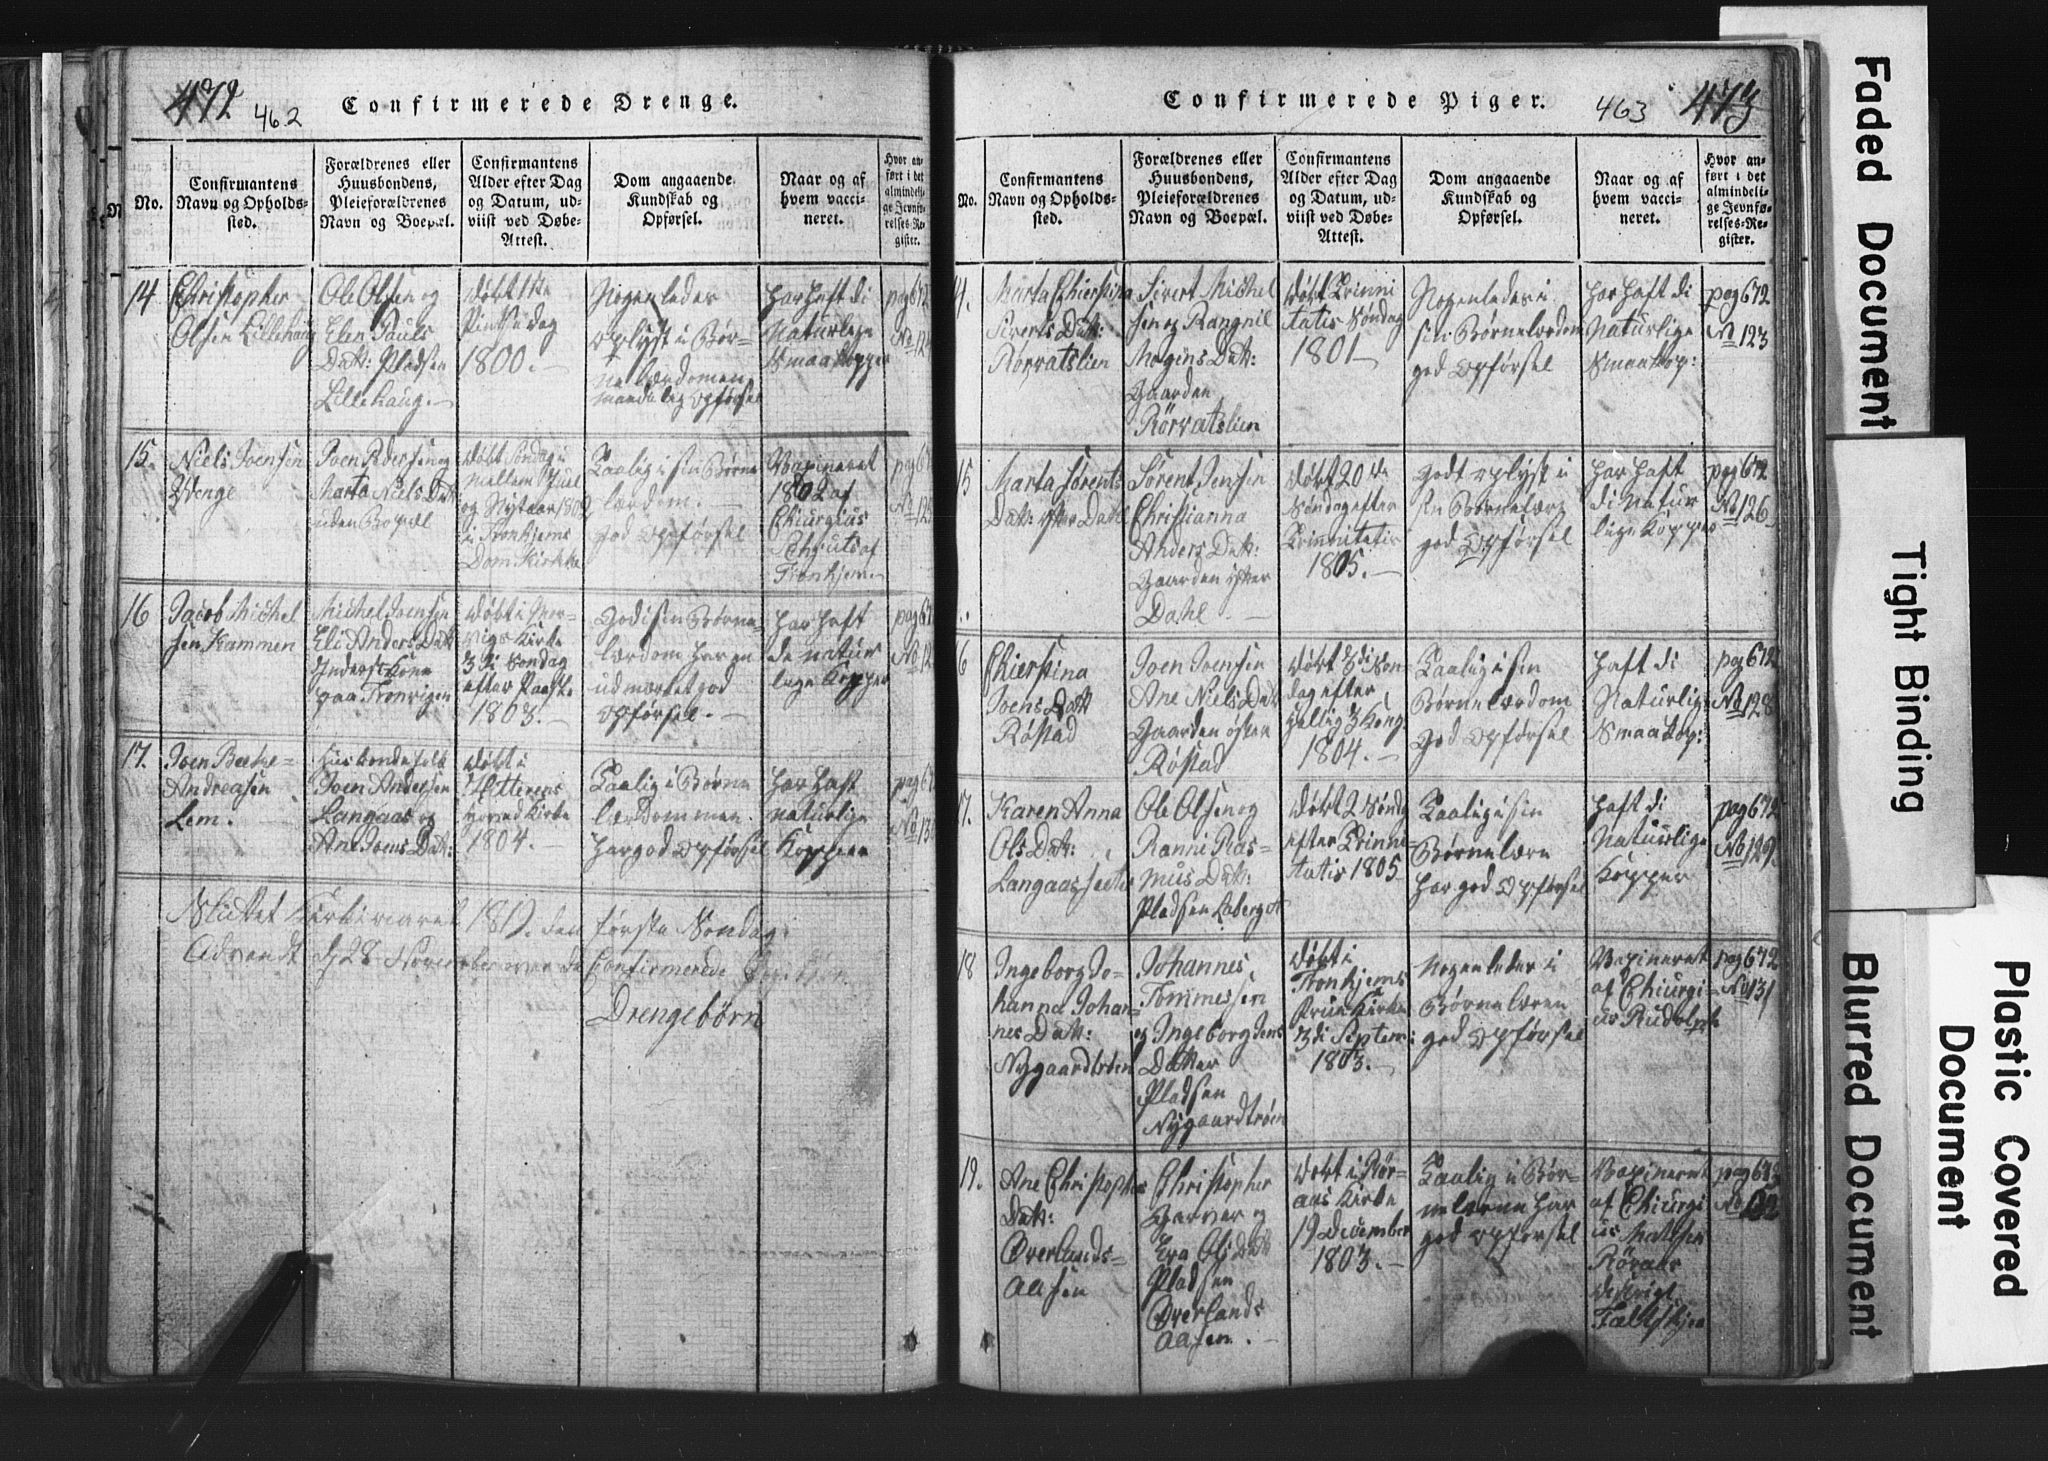 472 462
Confirmerede Drenge.
No.
Confirmantens
Navn og Opholds-
sted.
Forældrenes eller
Huusbondens,
Pleieforældrenes
Navn og Boepæl.
Confirmantens
Alder efter Dag
og Datum, ud-
viist ved Døbe-
Attest.
Dom angaaende
Kundskab og
Opførsel.
Naar og af
hvem vacci-
neret.
Hvor an-
ført i det
almindeli-
ge Jevnfø-
relses-Re-
gister.
14
Christopher
Olsen Lillehaug
Ole Olsen og
Elen Pauls
Datt: Pladsen
Lillehaug.
Døbt 1ste
Pintsedag
1800.
Nogenledes
oplyst i Bør-
nelærdomen
maadelig Opførsel
har haft di
Naturlige
Smaakopper
pag 672
No 124
15.
Niels Joensen
Wenge
Joen Pedersen og
Marta Niels Datt
uden Bopæl
Døbt Søndag
mellem Juul
og Nytaar 1802
i Tronhjems
Dom Kirke
Taalig i sin Børne
lærdom.
god Opførsel
Vaxineret
1802 af
Chiurgius
Schouts af
Tronhjem
pag 67
No 125
16
Jacob Michel
sen Kammen
Michel Joensen
Eli Anders Datt
Inderst Kone
paa Tronvigen
Døbt i
vigs Kirke
3di Søndag
efter Paaske
1803.
God i sin Børne-
lærdom har en
udmærket god
Opførsel.
har haft
de natur
lige Kopper
pag 67
No 12
17.
Joen Beetze-
Andreasen
Lem.
Husbondefolk
Joen Andersen
Langaas og
Ane Joens Datt:
Døbt i
Hitterens
Hoved Kirke
1804.
Taalig i Børne
lærdommen.
har god Opførsel
har haft
naturlige
Kopper
pag 67
No 13
Sluttet Kirkeaaret 1819. den første Søndag
Advendt d 28 November over de Confirmerede
Drengebørn
Confirmerede Piger.
463 473
No.
Confirmantens
Navn og Opholds-
sted.
Forældrenes eller
Huusbondens,
Pleieforældrenes
Navn og Boepæl.
Confirmantens
Alder efter Dag
og Datum, ud-
viist ved Døbe-
Attest.
Dom angaaende
Kundskab og
Opførsel.
Naar og af
hvem vacci-
neret.
Hvor an-
ført i det
almindeli-
ge Jevnfø-
relses-Re-
gister.
4.
Marta Chierstina
Siverts Datt:
Rørvatslien
Sivert Michel
sen og Rangnil
Mogens Datt:
Gaarden
Rørvatslien
Døbt Trinni
tatis Søndag
1801
Nogenledes i
sin Børnelærdom
god Opførsel
har haft di
Naturlige
Smaakop:
pag 672
No 123
15
Marta Sørents
Datt: yster Dahl
Sørent Jensen
Christianna
Anders Datt:
Gaarden yster
Dahl
Døbt 20de
Søndag efter
Trinnitatis
1805.
Godt oplyst i
sin Børnelære
god Opførsel
har haft
di Natur
lige Kopper
pag 672
No 126
6
Chierstina
Joens Datt
Røstad
Joen Joensen
Ane Niels Datt
Gaarden østen
Røstad
Døbt 3di Søn
dag efter
Hellig 3 Kong.
1804.
Taalig i sin
Børnelærdom
God Opførsel
Haft di
Naturlige
Smaakop:
pag 672
No 128
17.
Karen Anna
Ols Datt:
Langaassetter
Ole Olsen og
Ranni Ras-
mus Datt:
Pladsen Laberget
Døbt 2 Søndag
efter Trinne
tatis 1805
Taalig i sin
Børnelære
har god Opførsel
Haft di
Naturlige
Kopper
pag 672
No 129
18
Ingeborg Jo-
hanna Johan-
nes Datt:
Nygaardtrøen
Johannes
Tommessen
og Ingeborg Jens
Datter
Pladsen
Nygaardtrøen
Døbt i
Tronhjems
Frue Kirke
3di Septem:
1803.
Nogenledes i
Børnelæren
god Opførsel
Vaxineret
af Chiurgi-
us Rudolph
pag 672
No 131
19.
Ane Christophers
Datt:
Overlands-
aasen
Christopher
Garver og
Eva Ols Datt
Pladsen
Overlands
aasen.
Døbt i Rør-
aas Kirke
19 December
1803.
Taalig i Bør-
nelærne har
god Opførsel
Vaxineret
af Chiurgi
us
Røraas
pag 673
No 132
Faded Document
Tight Binding
Blurred Document
Plastic Covered
Document